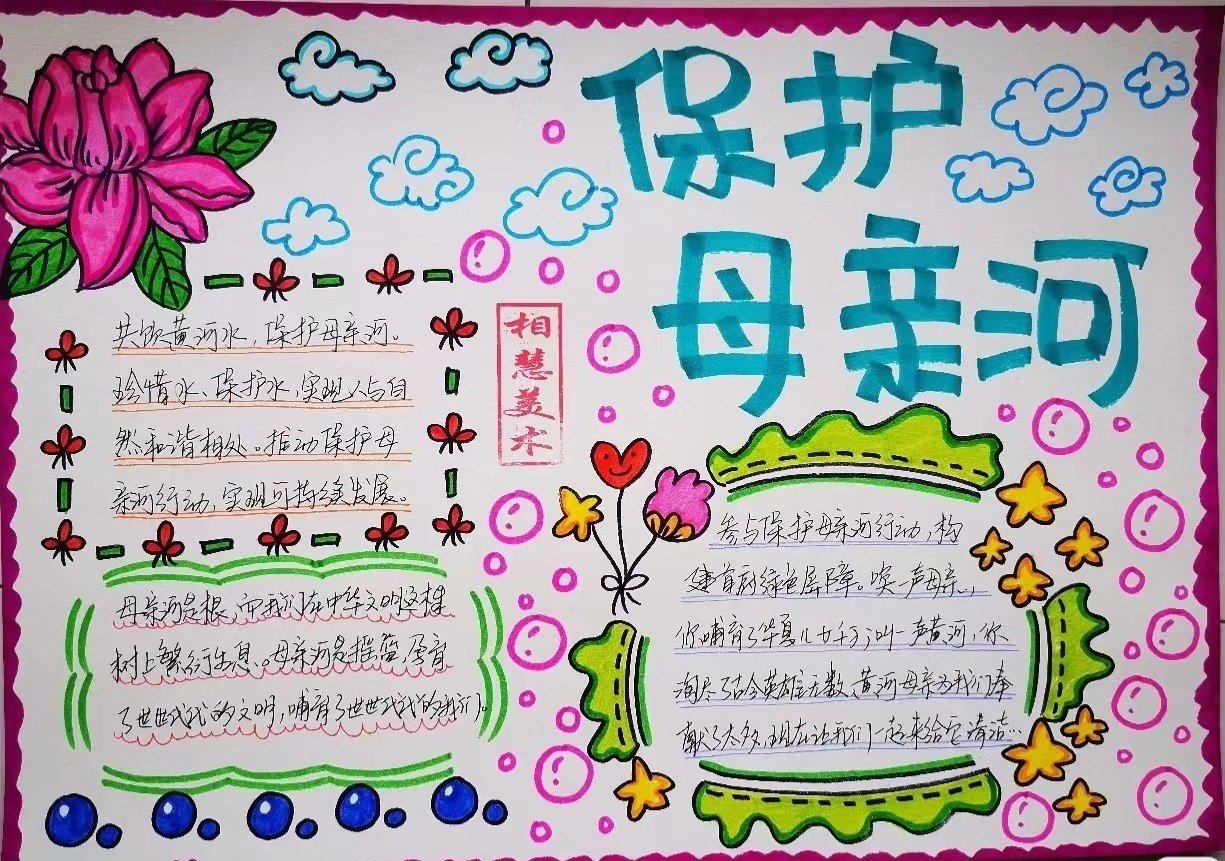 保护
母亲河
共饮黄河水，保护母亲河。
珍惜水、保护水，实现人与自
然和谐相处。推动保护母
亲河行动，实现可持续发展。
相慧美术
母亲河是根，而我们在中华文明这棵
树上繁衍生息。母亲河是摇篮，孕育
了世世代代的文明，哺育了世世代代的我们。
参与保护母亲河行动，构
建首都绿色屏障。喊一声母亲...，
你哺育了华夏儿女千万；叫一声黄河，你
淘尽了古今英雄无数、黄河母亲为我们奉
献了太多，现在让我们一起来给它清洁...